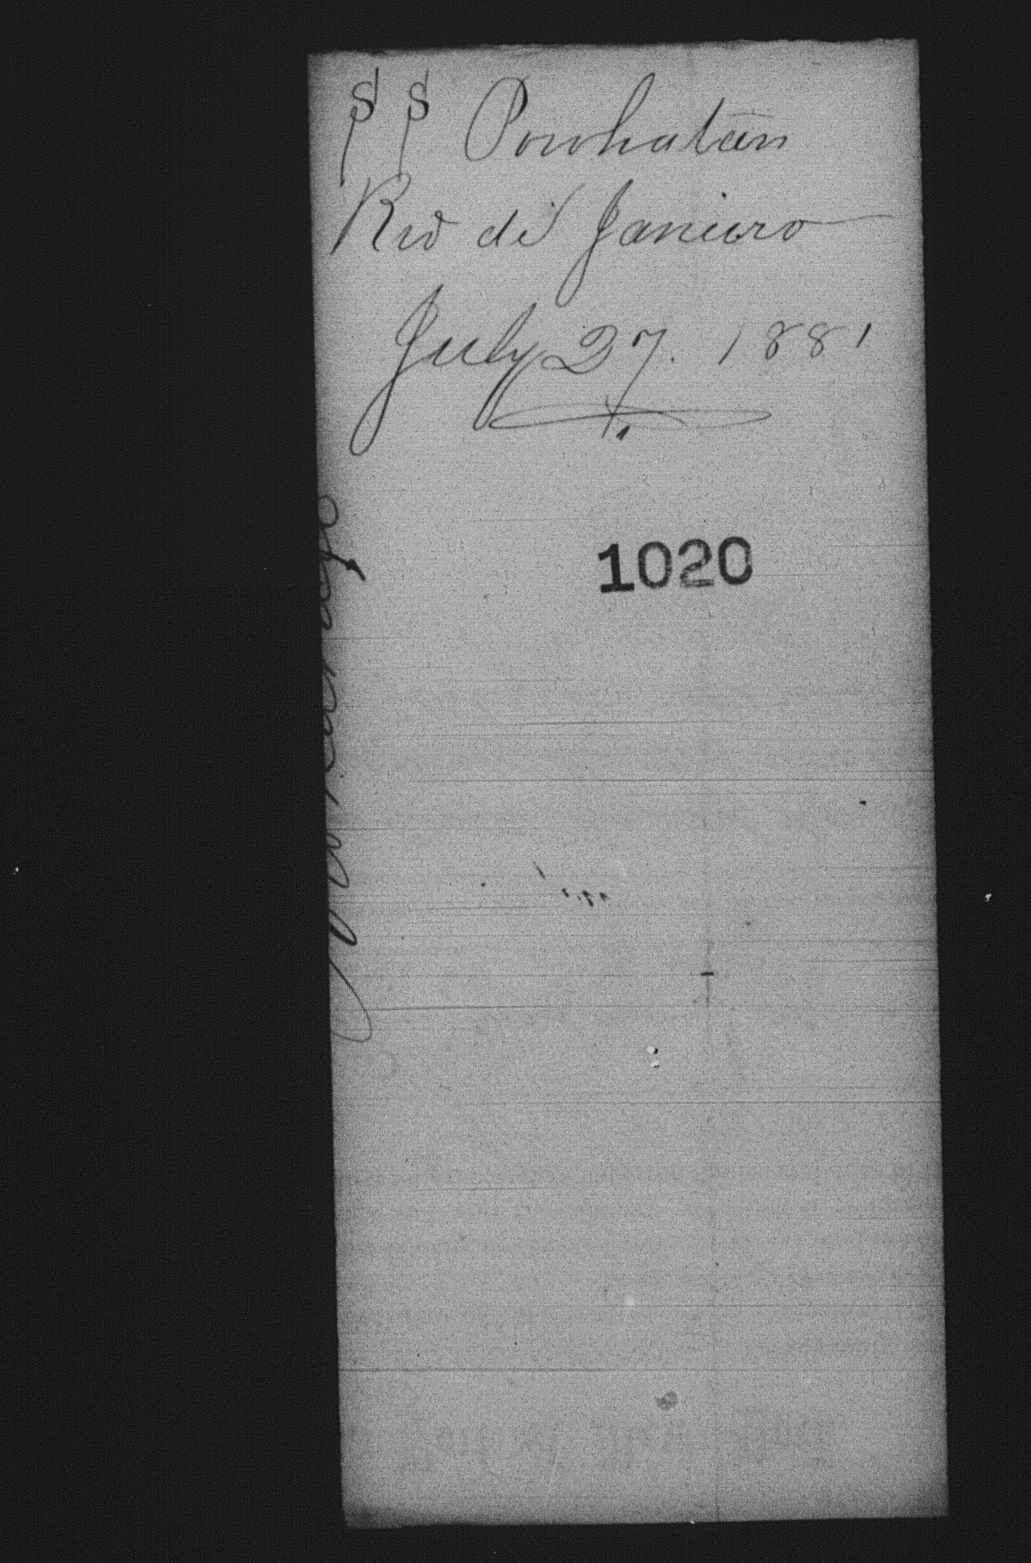 SS Powhatan
Rio de Janiero
July 27. 1881
1020